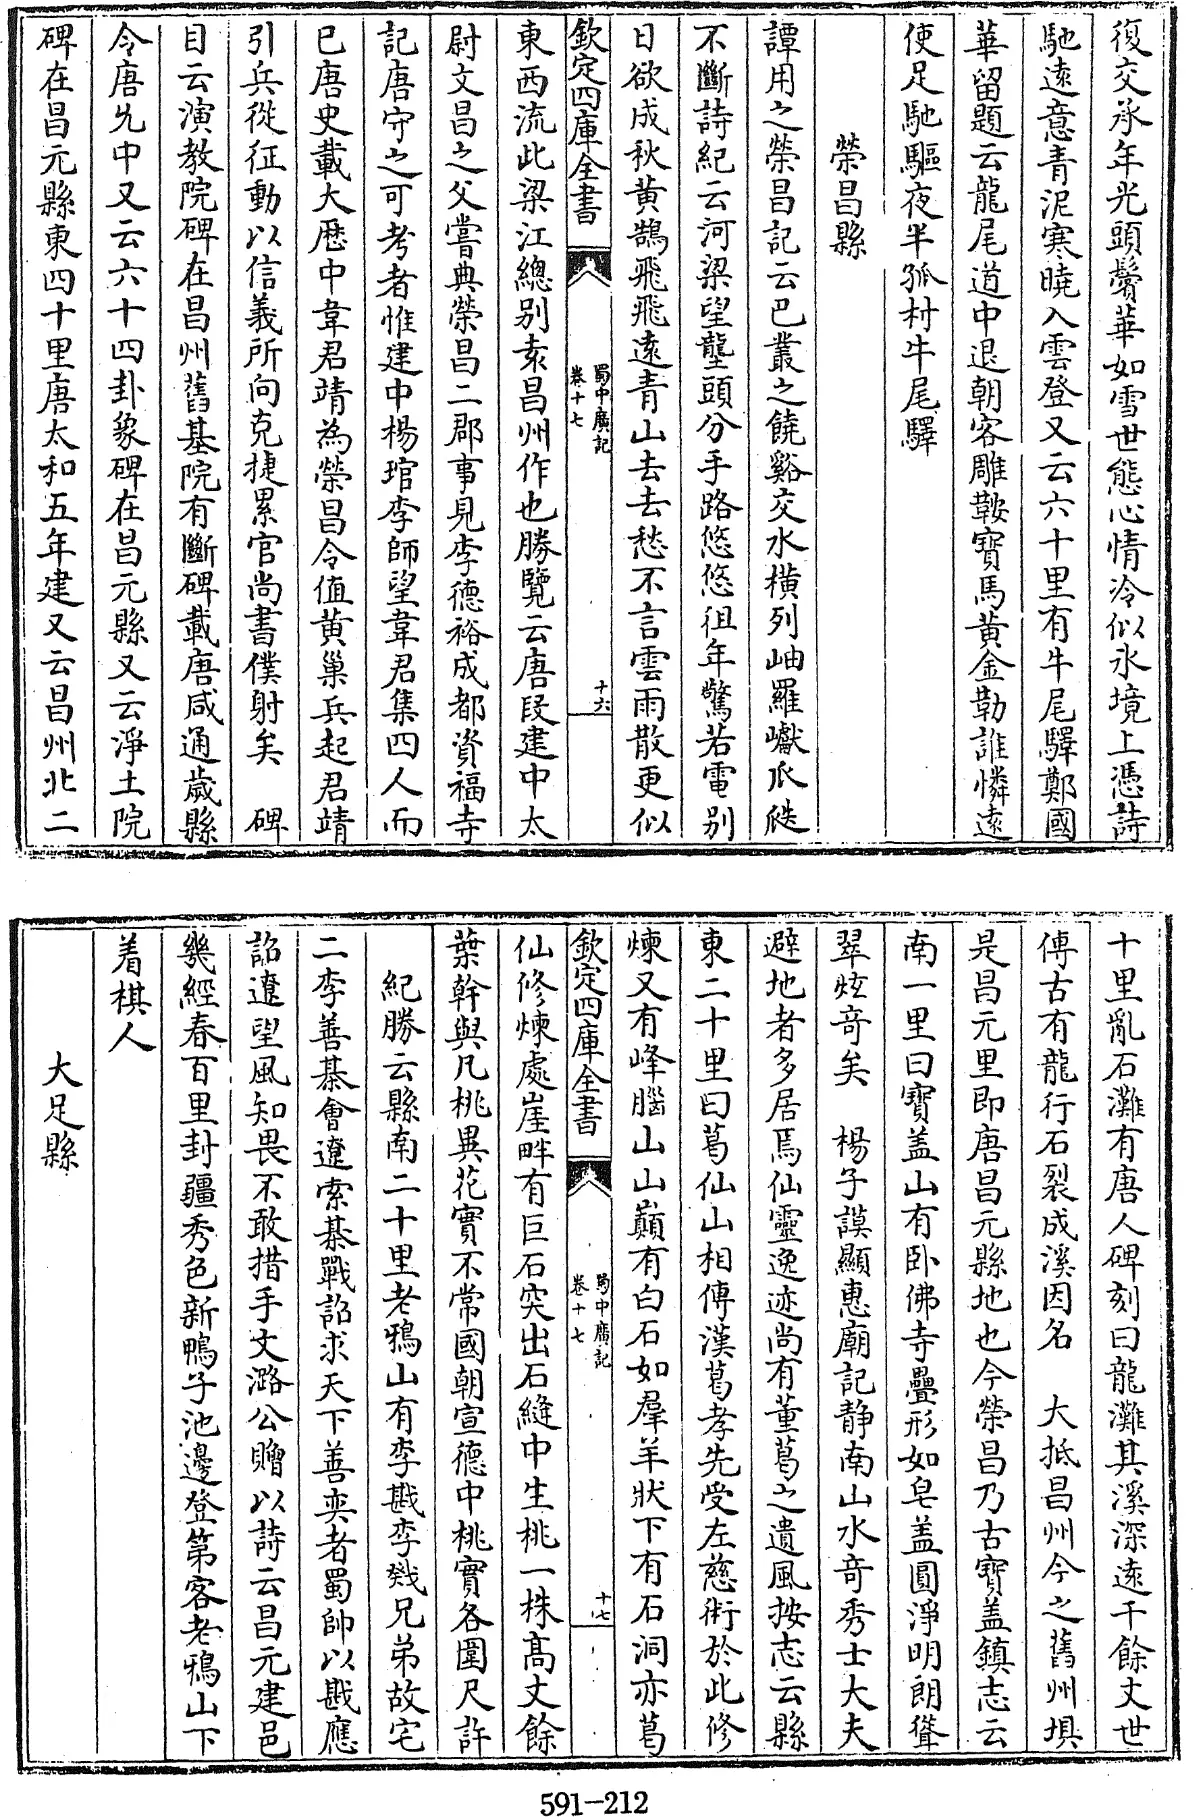 復交承年光頭鬢華如雪世態心情冷似氷境上憑詩
馳逺意青泥寒曉入雲登又云六十里有牛尾驛鄭國
華留題云龍尾道中退朝客雕鞍寳馬黄金勒誰憐逺
使足馳驅夜半孤村牛尾驛
榮昌縣
譚用之榮昌記云巴叢之饒谿交水横列岫羅巘爪𤓰
不斷詩紀云河梁望壟頭分手路悠悠徂年驚若電别
日欲成秋黄鵠飛飛逺青山去去愁不言雲雨散更似
欽定四庫全書
蜀中廣記
卷十七
十六
東西流此梁江總别袁昌州作也勝覽云唐段建中太
尉文昌之父嘗典榮昌二郡事見李德裕成都資福寺
記唐守之可考者惟建中楊琯李師望韋君集四人而
已唐史載大歴中韋君靖為榮昌令值黄巢兵起君靖
引兵從征動以信義所向克捷累官尚書僕射矣　碑
目云演教院碑在昌州舊基院有斷碑載唐咸通歲縣
令唐允中又云六十四卦象碑在昌元縣又云淨土院
碑在昌元縣東四十里唐太和五年建又云昌州北二
十里亂石灘有唐人碑刻曰龍灘其溪深逺千餘丈世
傳古有龍行石裂成溪因名　大抵昌州今之舊州垻
是昌元里即唐昌元縣地也今榮昌乃古寳盖鎮志云
南一里曰寳盖山有卧佛寺疊形如皂盖圓淨明朗聳
翠炫竒矣　楊子謨顯惠廟記静南山水竒秀士大夫
避地者多居焉仙靈逸迹尚有董葛之遺風按志云縣
東二十里曰葛仙山相傳漢葛孝先受左慈術於此修
煉又有峰腦山山巔有白石如羣羊狀下有石洞亦葛
欽定四庫全書
蜀中廣記
卷十七
十七
仙修煉處崖畔有巨石突出石縫中生桃一株髙丈餘
葉幹與凡桃異花實不常國朝宣德中桃實各圍尺許
紀勝云縣南二十里老鴉山有李戡李㦸兄弟故宅
二李善棊會遼索棊戰詔求天下善奕者蜀帥以戡應
詔遼望風知畏不敢措手文潞公贈以詩云昌元建邑
幾經春百里封疆秀色新鴨子池邊登第客老鴉山下
着棋人
大足縣
591-212